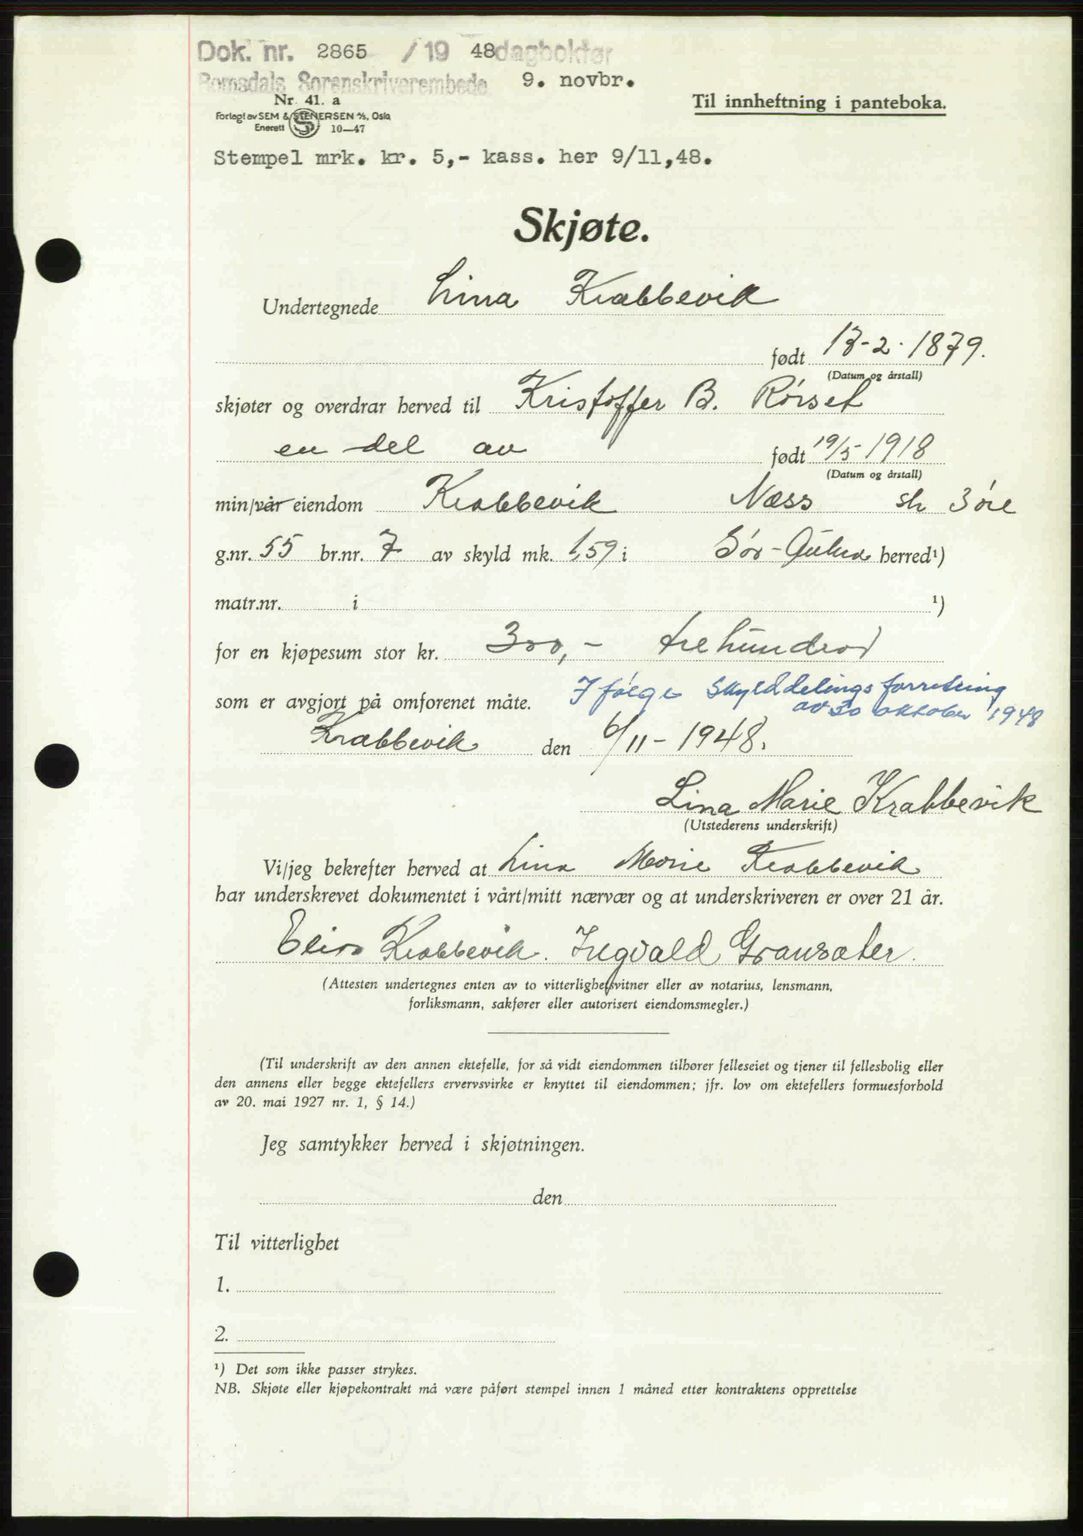 Dok. nr. 2865 /19 48 dagbokfør
Romsdals Sorenskriverembede 9. novbr.
Nr. 41. a
Til innheftning i panteboka.
Forlagt av SEM & STENERSEN A/S, Oslo
Enerett 10—47
Stempel mrk. kr. 5,- kass. her 9/11,48.
Skjøte.
Undertegnede Lina Krabbevik
født 13-2-1879.
(Datum og årstall)
skjøter og overdrar herved til Kristoffer B. Rørset
en del av født 19/5-1918
(Datum og årstall)
min/vår eiendom Krabbevik Næss
g.nr. 55 br.nr. 7 av skyld mk. 1,59 i herred¹)
matr.nr. i ¹)
for en kjøpesum stor kr. 300,- trehundrod
som er avgjort på omforenet måte. Ifølge Skylddelingsforretning
av 30 oktober 1948
Krabbevik den 6/11-1948.
Lina Marie Krabbevik
(Utstederens underskrift)
Vi/jeg bekrefter herved at Lina Marie Krabbevik
har underskrevet dokumentet i vårt/mitt nærvær og at underskriveren er over 21 år.
Krabbevik. Ingvald Gransæter.
(Attesten undertegnes enten av to vitterlighetsvitner eller av notarius, lensmann,
forliksmann, sakfører eller autorisert eiendomsmegler.)
(Til underskrift av den annen ektefelle, for så vidt eiendommen tilhører felleseiet og tjener til fellesbolig eller
den annens eller begge ektefellers ervervsvirke er knyttet til eiendommen; jfr. lov om ektefellers formuesforhold
av 20. mai 1927 nr. 1, § 14.)
Jeg samtykker herved i skjøtningen.
den
Til vitterlighet
1.
2.
¹) Det som ikke passer strykes.
NB. Skjøte eller kjøpekontrakt må være påført stempel innen 1 måned etter kontraktens opprettelse